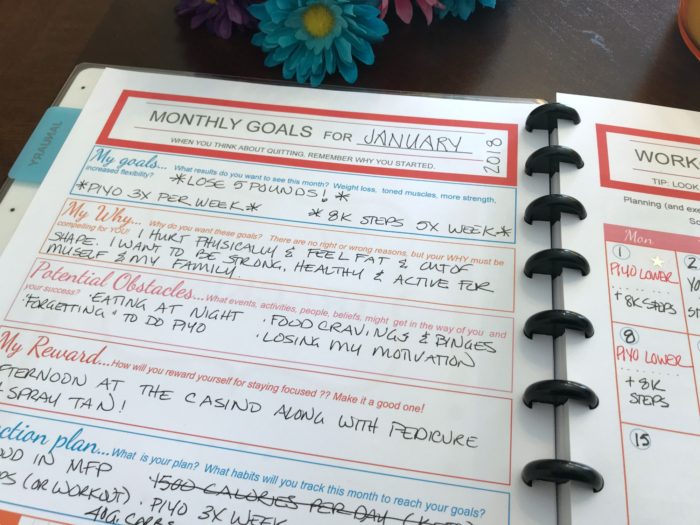 MONTHLY GOALS FOR JANUARY 2018
WHEN YOU THINK ABOUT QUITTING, REMEMBER WHY YOU STARTED.
JANUARY
My goals... What results do you want to see this month? Weight loss, toned muscles, more strength,
increased flexibility?
*LOSE 5 POUNDS! *
*PIYO 3X PER WEEK* * 8K STEPS 5X WEEK*
My Why... Why do you want these goals? There are no right or wrong reasons, but your WHY must be
competing for YOU! I HURT PHYSICALLY & FEEL FAT & OUT OF
SHAPE. I WANT TO BE STRONG, HEALTHY & ACTIVE FOR
MYSELF & MY FAMILY.
Potential Obstacles... What events, activities, people, beliefs, might get in the way of you and
your success? · EATING AT NIGHT · FOOD CRAVINGS & BINGES
· "FORGETTING" TO DO PIYO · LOSING MY MOTIVATION
My Reward... How will you reward yourself for staying focused ?? Make it a good one!
AFTERNOON AT THE CASINO ALONG WITH PEDICURE
SPRAY TAN!
ction plan... What is your plan? What habits will you track this month to reach your goals?
IN MFP 1500 CALORIES PER DAY
(OR WORKOUT) · PIYO 3X WEEK
40g CARBS
WORK
TIP: LOOK
Planning (and exe
Mon.
1 2
PIYO LOWER
+ 8K STEPS
8 9
PIYO LOWER
+ 8K
STEPS
15